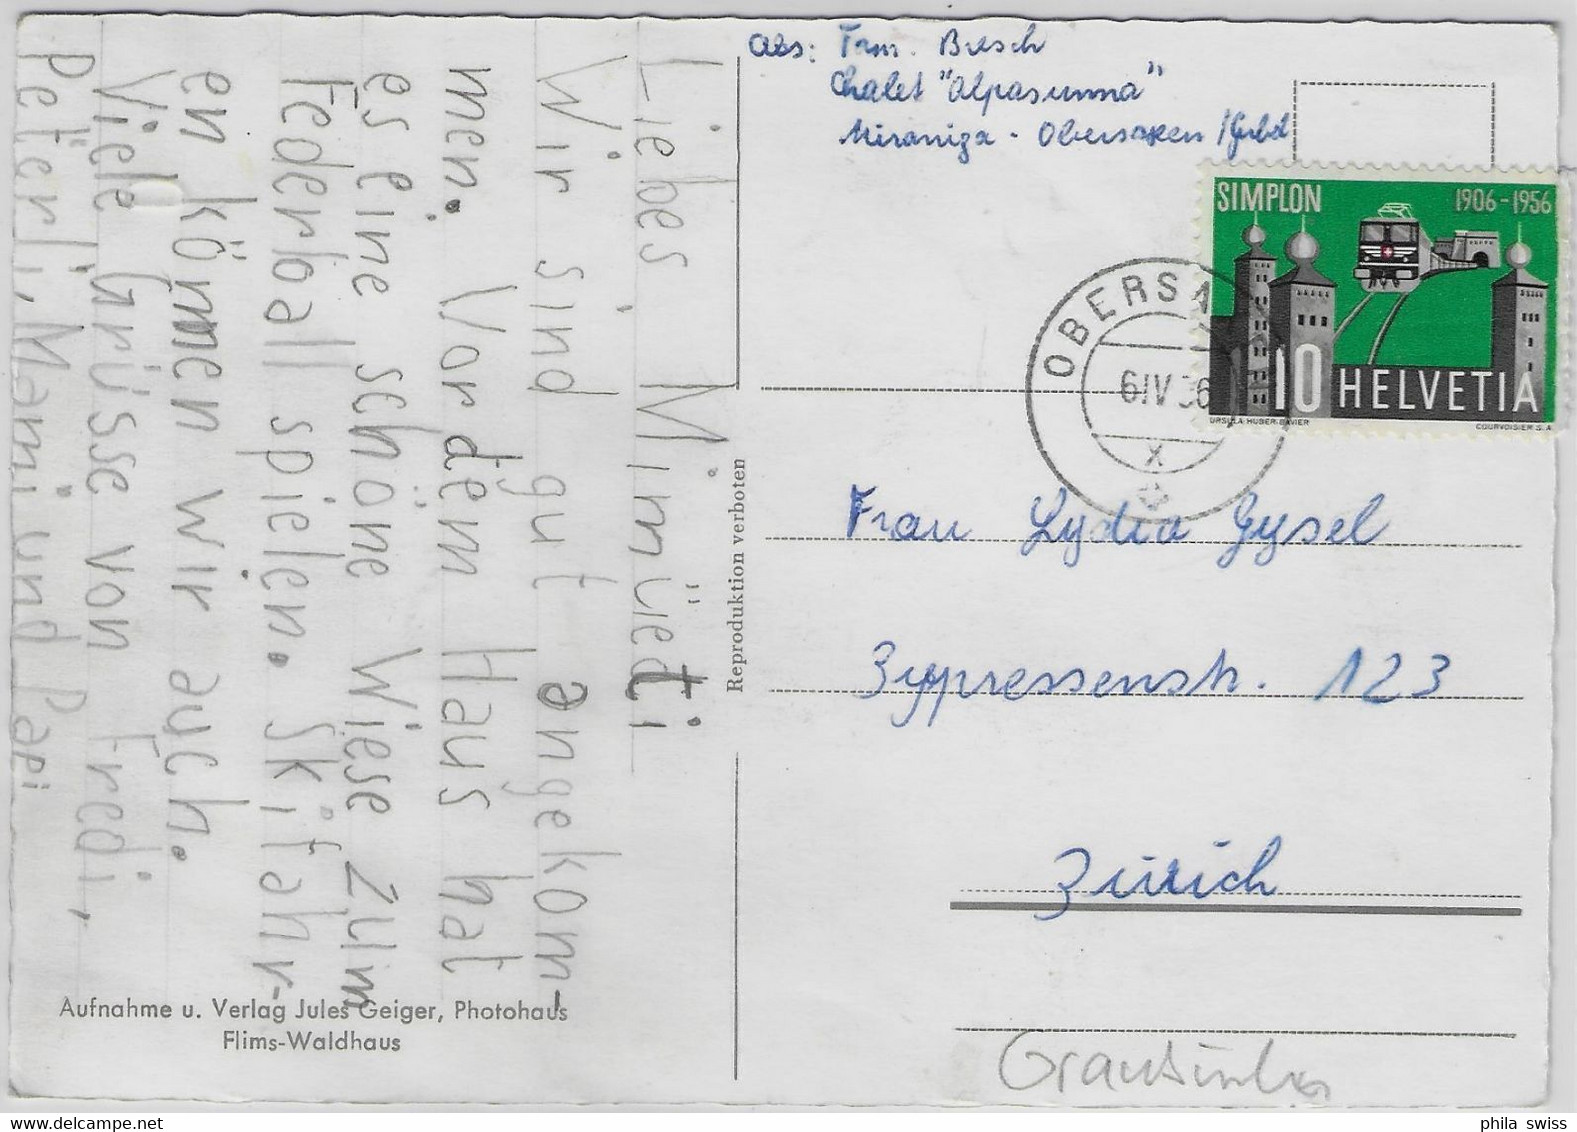 Liebes Minüeti
Wir sind gut angekom-
men. Vor dem Haus hat
es eine schöne Wiese zum
Federball spielen. Skifahr-
en können wir auch.
Viele Grüsse von Fredi,
Peterli, Mami und Papi
Aufnahme u. Verlag Jules Geiger, Photohaus
Flims-Waldhaus
Reproduktion verboten
Abs: Fam. Büsch
Chalet "Alpasunna"
Miraniga - Obersaxen /Grbd
SIMPLON 1906-1956
10 HELVETIA
URSULA HUBER-BAVIER COURVOISIER S.A.
OBERSA
6.IV 56
X
Frau Lydia Gysel
Zypressenstr. 123
Zürich
Graubünden
phila swiss